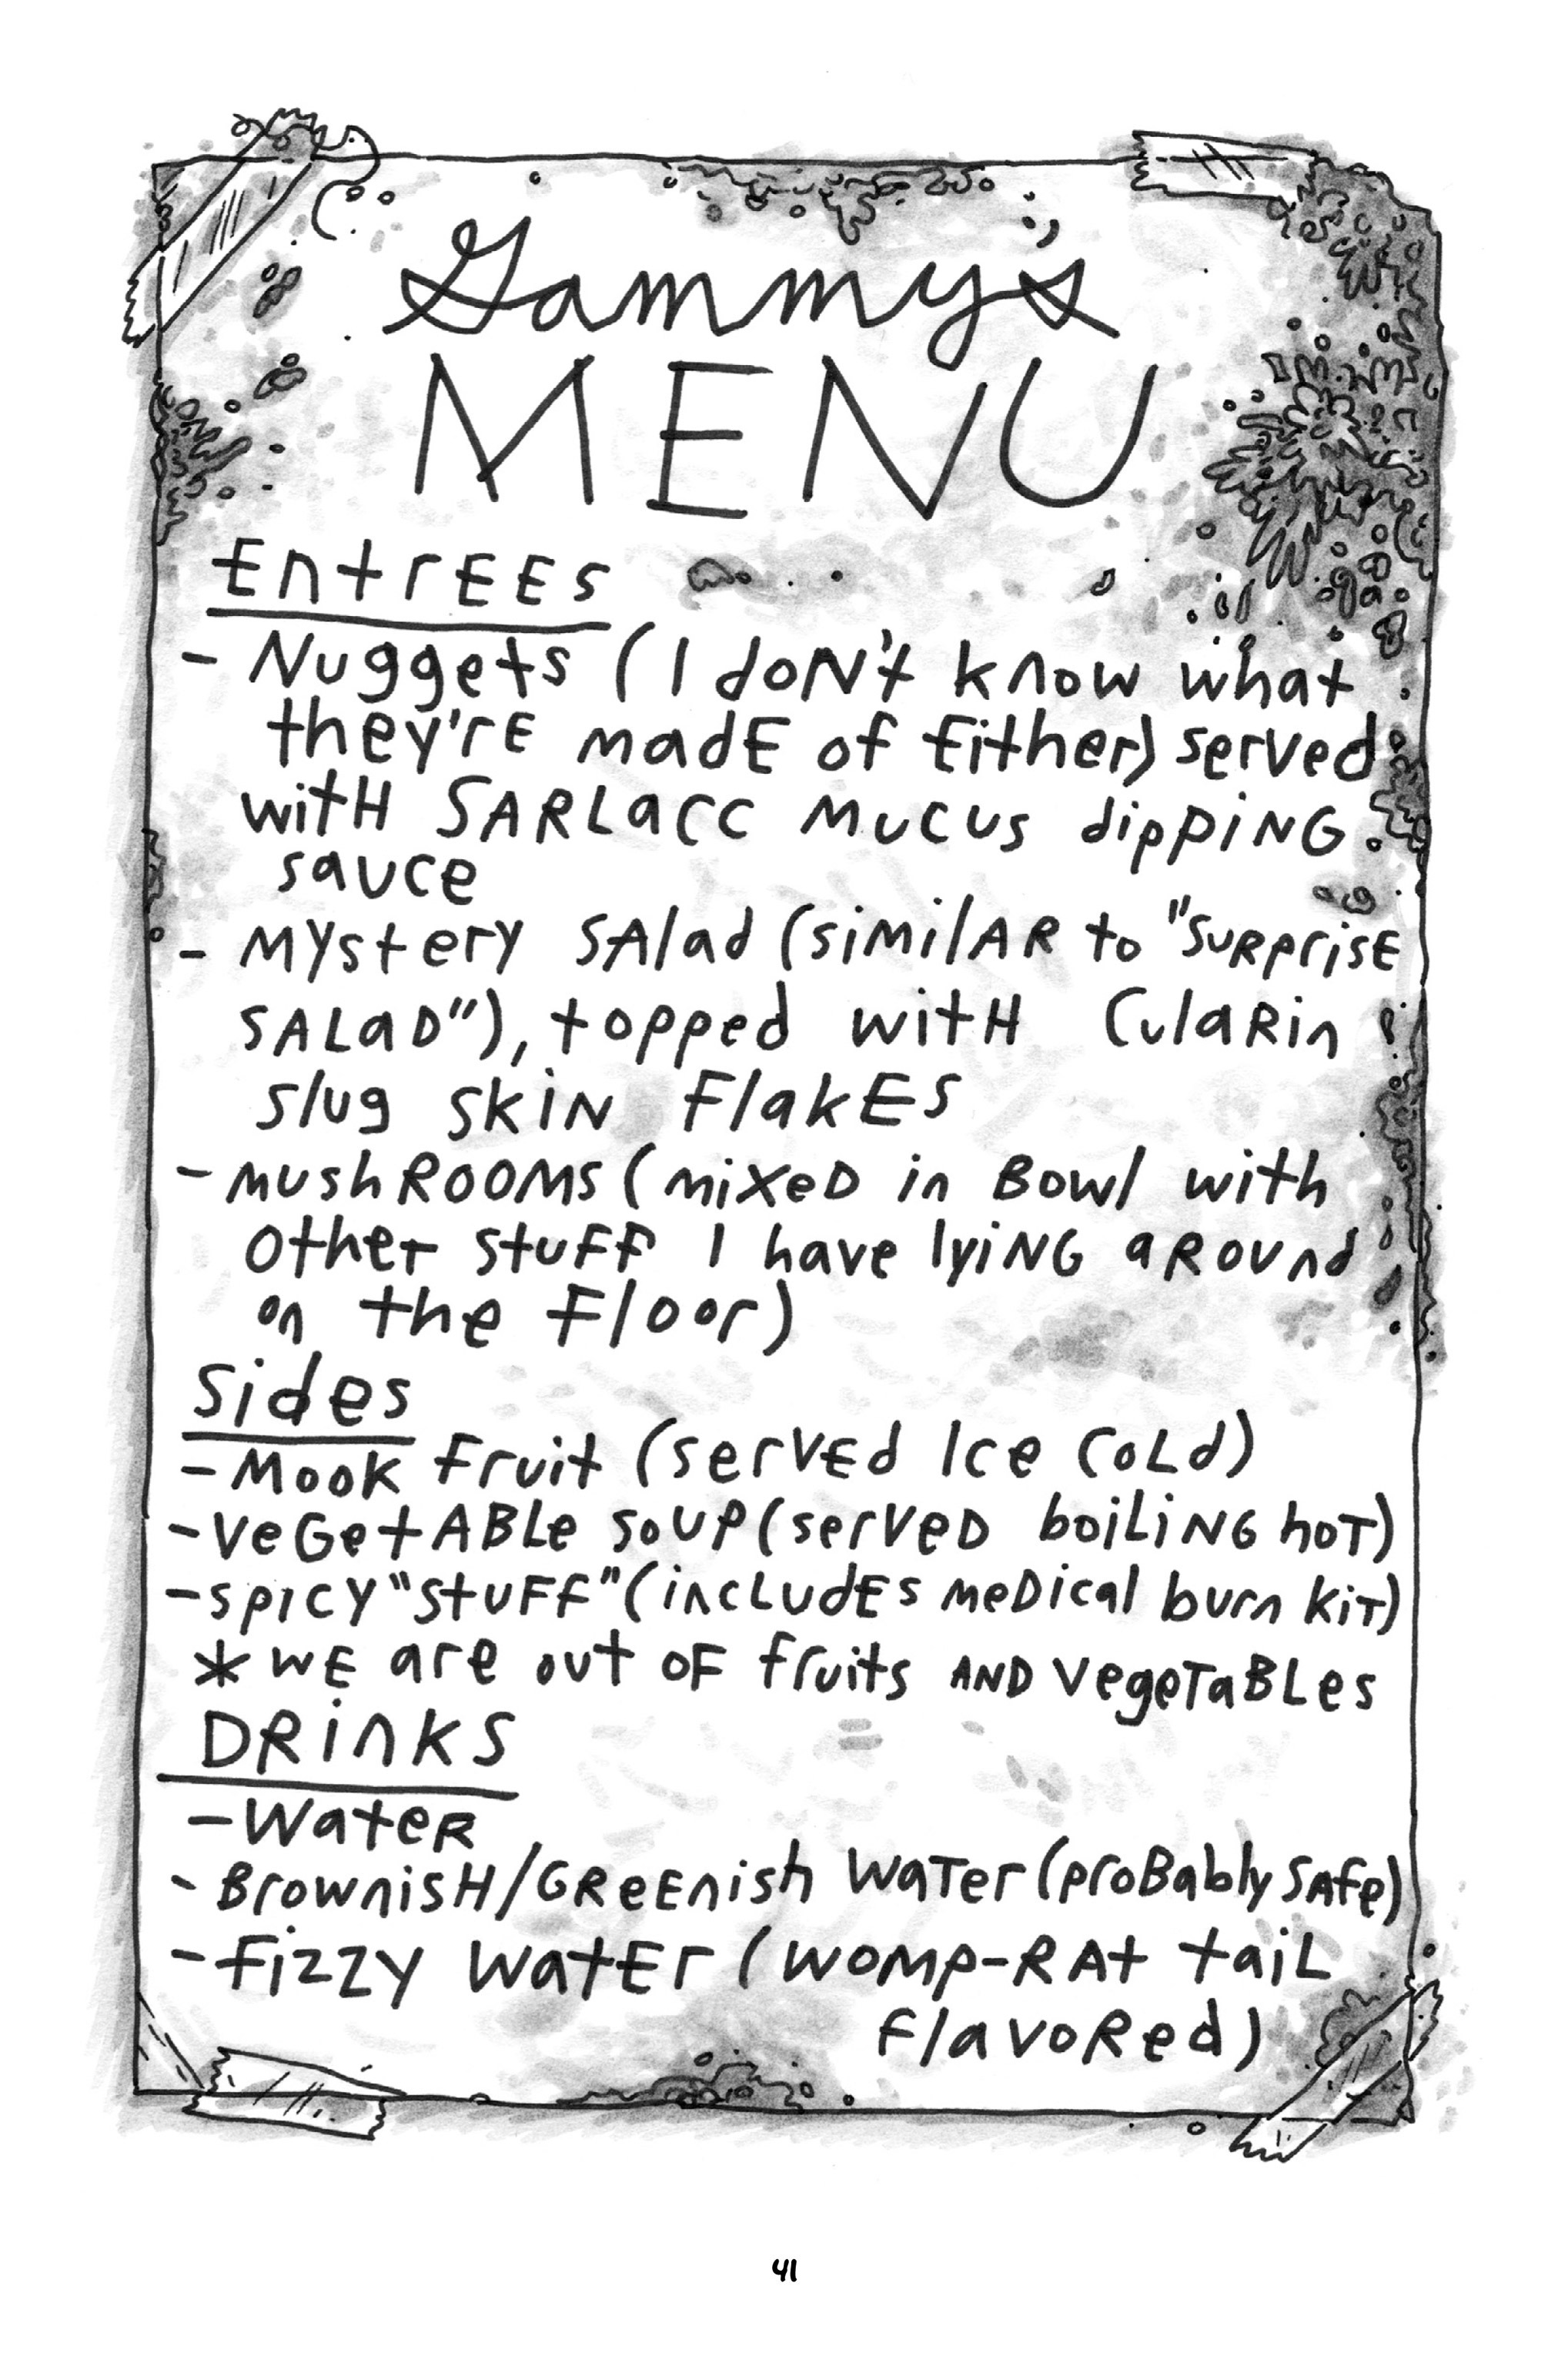 Gammy's
MENU
Entrees
- Nuggets (I don't know what
they're made of either) served
with Sarlacc mucus dipping
sauce
- Mystery salad (similar to "surprise
salad"), topped with Cularin
slug skin flakes
- mushrooms (mixed in bowl with
other stuff I have lying around
on the floor)
Sides
- Mook fruit (served ice cold)
- vegetable soup (served boiling hot)
- spicy "stuff" (includes medical burn kit)
* we are out of fruits and vegetables
Drinks
- Water
- Brownish/Greenish water (probably safe)
- Fizzy water (womp-rat tail
flavored)
41